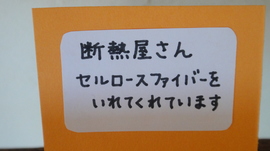 断熱屋さん
セルロースファイバーを
いれてくれています